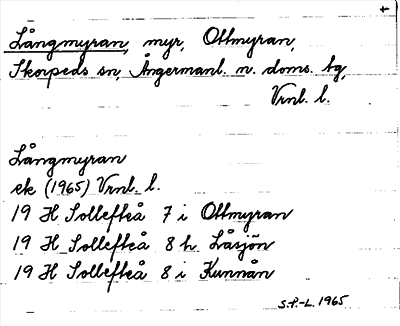 +
Långmyran, myr, Ottmyran,
Skorpeds sn, Ångermanl. n. doms. tg,
Vrnl. l.
Långmyran
ek (1965) Vrnl. l.
19 H Sollefteå 7 i Ottmyran
19 H Sollefteå 8 h Låsjön
19 H Sollefteå 8 i Kunnån
S.F.-L. 1965